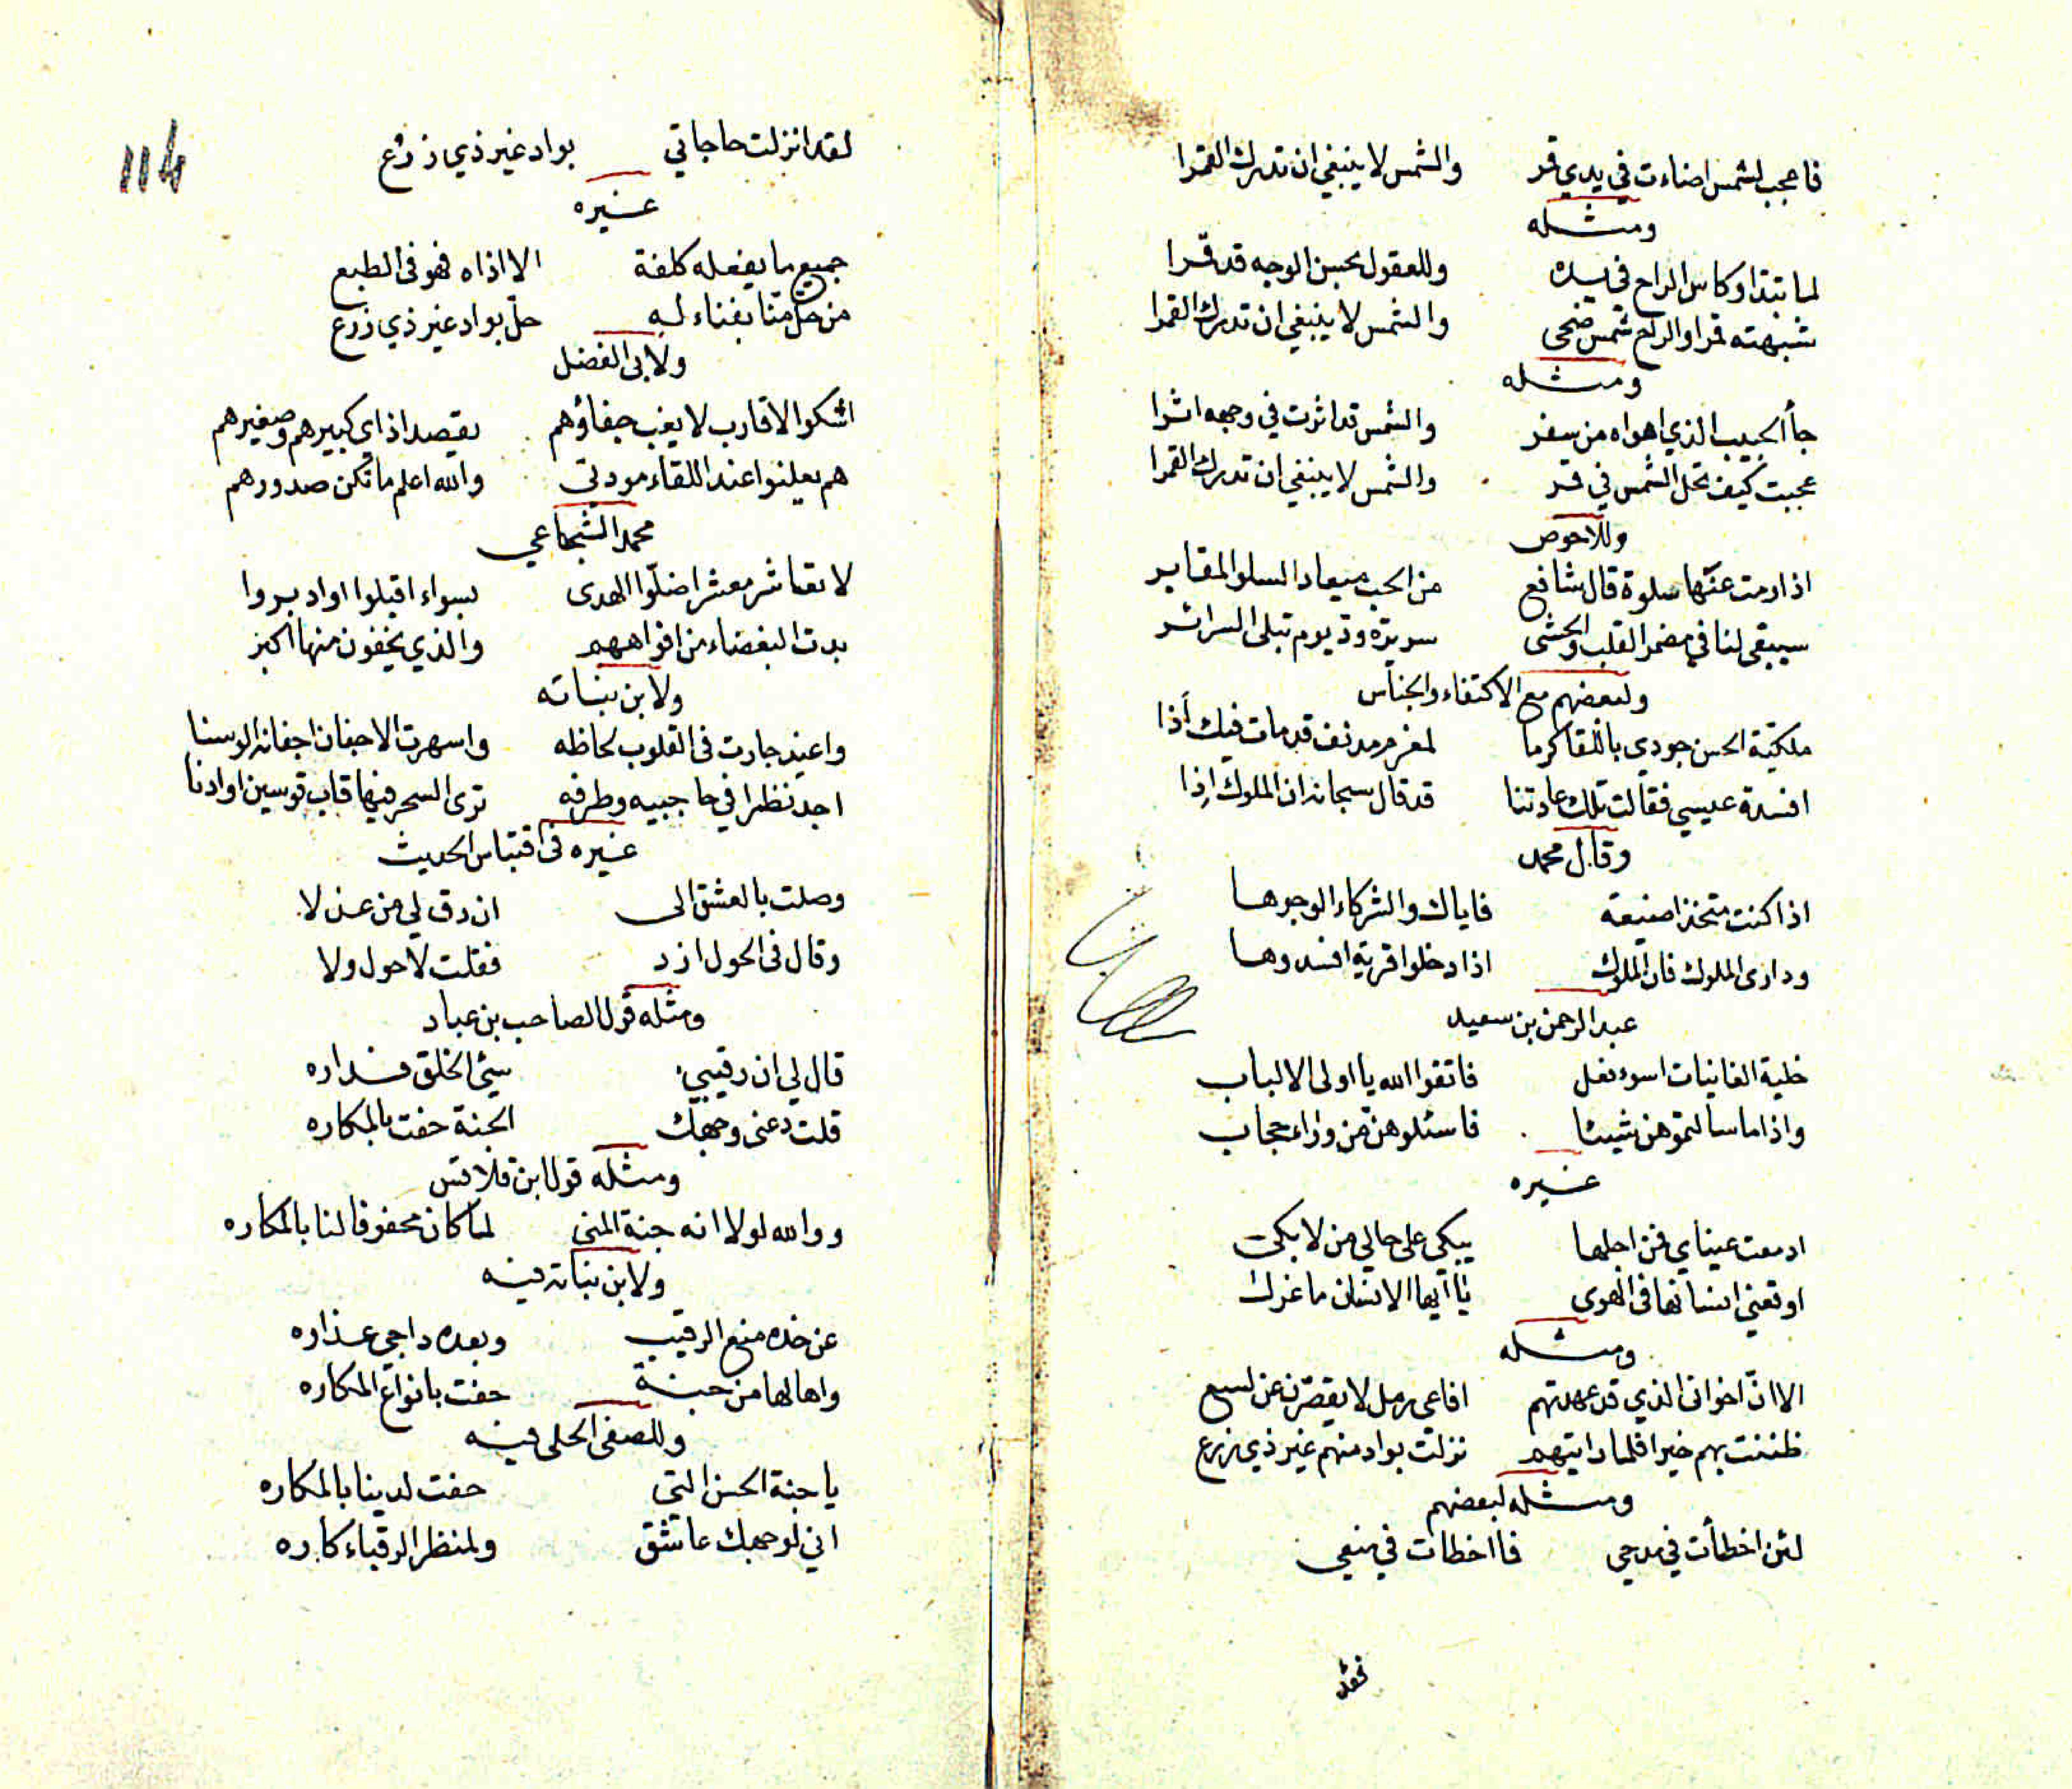 فاعجب لشمس اضاءت في يدي قمر والشمس لا ينبغي ان تدرك القمرا
ومثله
لما تبدا وكاس الراح في يده وللعقول بحسن الوجه قد قمرا
شبهته قمرا والراح شمس ضحى والشمس لا ينبغي ان تدرك القمرا
ومثله
جأ الحبيب الذي اهواه من سفر والشمس قد اثرت في وجهه اثرا
عجبت كيف تحل الشمس في قمر والشمس لا ينبغي ان تدرك القمرا
وللاحوص
اذا رمت عنها سلوة قال شافع من الحب ميعاد السلو المقابر
سيبقى لنا في مضمر القلب والحشى سريرة ود يوم تبلى السرائر
ولبعضهم مع الاكتفاء والجناس
مليكة الحسن جودي باللقا كرما لمغرم مدنف قد مات فيك أذا
افسدة عيسي فقالت تلك عادتنا قد قال سبحانه ان الملوك إذا
وقال محمد
اذا كنت متخذا صنيعة فاياك والشركاء الوجوها
ودارى الملوك فان الملوك اذا دخلوا قرية افسدوها
عبد الرحمن بن سعيد
خلية الغانيات اسوء فعل فاتقوا الله يا اولى الالباب
واذا ما سالتموهن شيئا فاسئلوهن من وراء حجاب
غيره
ادمعت عيناي فمن اجلها يبكي على حالي من لا بكى
اوقعني انسانها في الهوى يا ايها الانسان ما غرك
ومثله
الا ان اخواني الذي قد عهدتهم افاعى رمل لا يقصرن عن لسع
ظننت بهم خيرا فلما رايتهم نزلت بواد منهم غير ذي زرع
ومثله لبعضهم
لئن اخطأت في مدحي فا اخطات في منعي
فقد
114
لقد انزلت حاجاتي بواد غير ذي زرع
غيره
جميع ما يفعله كلفة الا اذاه فهو في الطبع
من حل منا بفناء له حل بواد غير ذي زرع
ولابى الفضل
اشكوا الاقارب لا يغب جفاؤهم يقصد اذاي كبيرهم وصغيرهم
هم يعلنوا عند اللقاء مودتي والله اعلم ما تكن صدورهم
محمد الشجاعي
لا تعاشر معشرا ضلوا الهدى بسواء اقبلوا او ادبروا
بدت البغضاء من افواههم والذي يخفون منها اكبر
ولابن نباته
واغيد جارت في القلوب لحاظه واسهرت الاجفان اجفانه الوسنا
اجد نظرا في حاجبيه وطرفه ترى السحر فيها قاب قوسين او ادنا
غيره في اقتباس الحديث
وصلت بالعشق الى ان رق لي من عذلا
وقال في الحول ازد فقلت لا حول ولا
ومثله قول الصاحب بن عباد
قال لي ان رقيبي سيئ الخلق فداره
قلت دعني وجهك الجنة حفت بالمكاره
ومثله قول ابن قلاقس
ووالله لولا انه جنة المنى لما كان محفوفا لنا بالمكاره
ولابن نباته فيه
عن خده منع الرقيب وبعده داجي عذاره
واها لها من جنة حفت بانواع المكاره
وللصفى الحلى فيه
يا جنة الحسن التي حفت لدينا بالمكاره
اني لوجهك عاشق ولمنظر الرقباء كاره